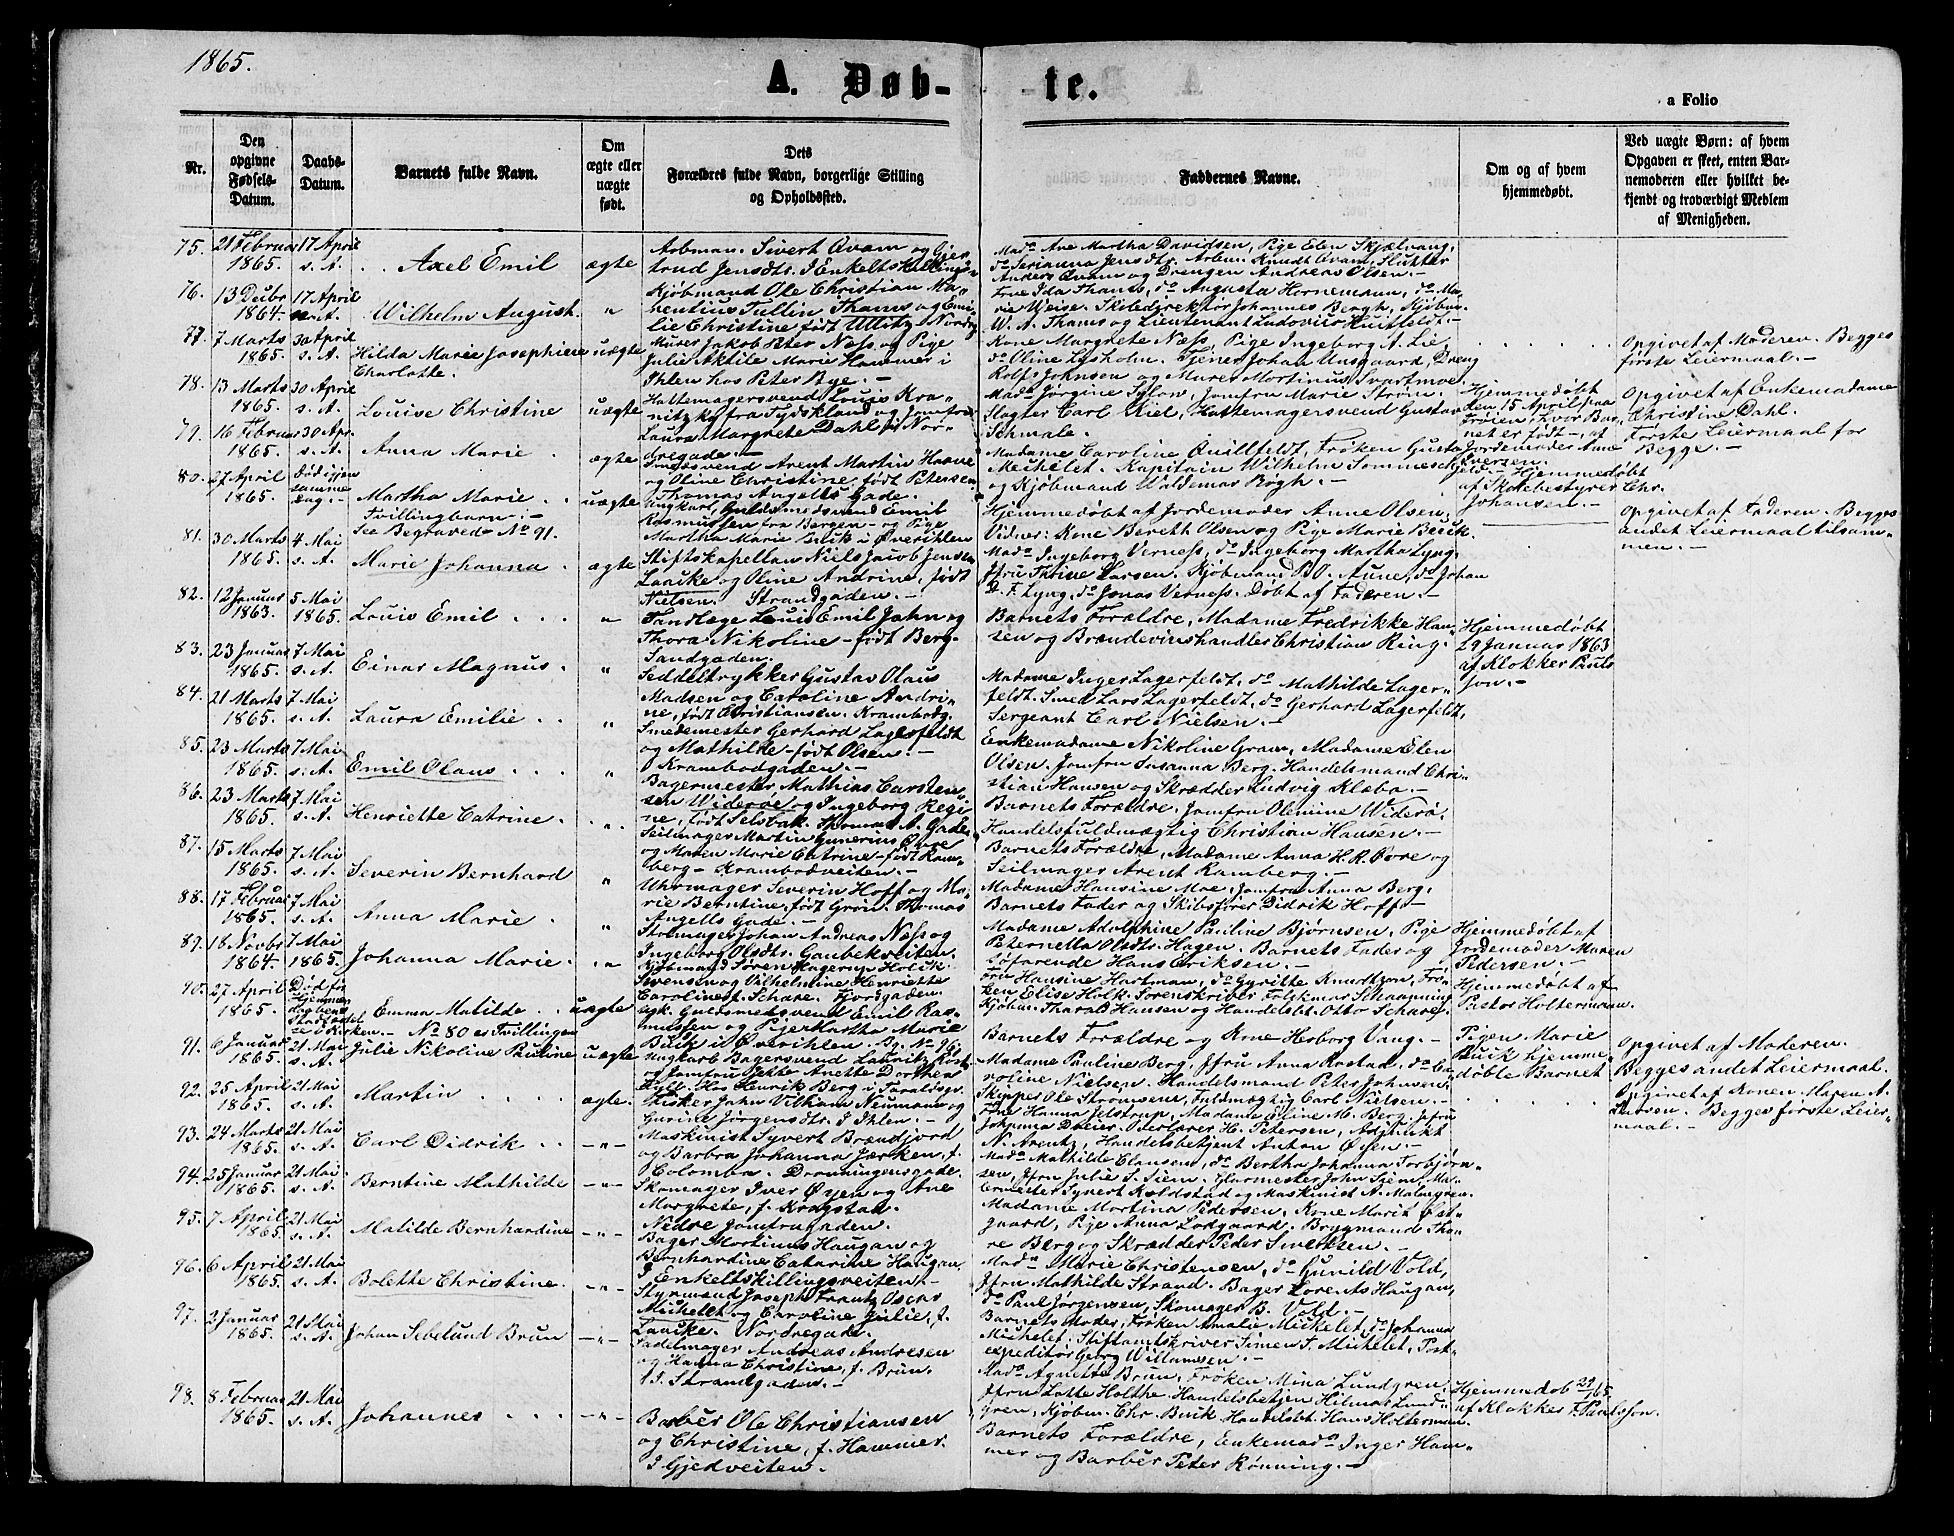 1865.
A. Døb-
te.
a Folio
Nr.
Den
opgivne
Fødsels-
Datum.
Daabs-
Datum.
Barnets fulde Navn.
Om
ægte eller
uægte
født.
Dets
Forældres fulde Navn, borgerlige Stilling
og Opholdssted.
Faddernes Navne.
Om og af hvem
hjemmedøbt.
Ved uægte Børn: af hvem
Opgaven er skeet, enten Bar-
nemoderen eller hvilket be-
kjendt og troværdigt Medlem
af Menigheden.
75.
21 Februar
1865.
17 April
s. A.
Axel Emil
ægte
Arbman. Sivert Qvam og Gjer-
trud Jensdtr. I Enkeltskillingsv.
Mad. Ane Martha Davidsen, Pige Elen Skjelvang,
do Serianna Jensdtr. Arbm. Knudt Qvam, Slutter
Anders Qvam og Drengen Andreas Olsen.-
76.
13 Decbr
1864.
17 April
s. A.
Wilhelm August.
"
Kjøbmand Ole Christian Ma-
rentius Tullin Thams og Emi-
lie Christine født Ullitz. Nordreg.
Frue Ida Thams, do Augusta Hornemann, do Ma-
rie Weise. Skoledirektør Johannes Bergh, Kjøbm.
W. A. Thams og Lieutenant Ludovico Huitfeldt.-
77.
7 Marts
1865.
30 April
s. A.
Hilda Marie Josephiene
Charlotte.
uægte
Murer Jakob Peter Næss og Pige
Julie Aktile Marie Hammer i
Ihlen hos Peter Bye.-
Kone Margrete Næss, Pige Ingeborg A. Lie,
do Oline Løsholm. Tjener Johan Unsgaard, Dreng
Rolf Johnsen og Murer Mortinus Svartmoe.
Opgivet af Moderen. Begges
første Leiermaal.-
78.
13 Marts
1865.
30 April
s. A.
Louise Christine
uægte
Hattemagersvend Louis Kra-
nitzky fra Tydskland og Jomfru
Laura Margrete Dahl, i Nor-
dregade.-
Mad. Jørgine Sylow, Jomfru Marie Strøm.
Slagter Carl Kiel, Hattemagersvend Gustav
Schmale.
Hjemmedøbt
den 15 April paa
Frøien, hvor Bar-
net er født-, af
Jordemoder Anne
Iversen.
Opgivet af Enkemadame
Christine Dahl.
Første Leiermaal for
Begge.-
79.
16 Februar
1865.
30 Apr.
s. A.
Anna Marie
ægte
Smedsvend Arent Martin Haave
og Oline Christine født Petersen
Thomas Angells Gade.
Madame Caroline Quillfeldt, Frøken Gusta
Michelet. Kapitain Wilhelm Sommersch-
jeld og Kjøbmand Waldemar Bøgh.-
Hjemmedøbt
af Skolebestyrer Chr.
Johansen.-
80.
27 April
1865.
Død igjen
samme
Dag.-
Martha Marie
Tvillingbarn:-
See Begravede No 91.
uægte
Ungkarl, Guldsmedsvend Emil
Rasmussen fra Bergen- og Pige
Martha Marie Buck i Øverihlen
Hjemmedøbt af Jordemoder Anne Olsen.
Vidner: Kone Bereth Olsen og Pige Marie Beuck.
Opgivet af Faderen. Begges
andet Leiermaal tilsam-
men.-
81.
30 Marts
1865.
4 Mai
s. A.
Marie Johanna
ægte
Stiftskapellan Niels Jacob Jensen
Laache og Oline Andrine, født
Nielsen. Strandgaden.-
Mado Ingeborg Verness, do Ingeborg Martha Lyng,
Jfru Thrine Larsen. Kjøbmand P. O. Aune, do Johan
D. F. Lyng, do Jonas Verness. Døbt af Faderen.-
82.
12 Januar
1863.
5 Mai
1865.
Louis Emil
"
Tandlæge Louis Emil Jahn og
Thora Nikoline- født Berg.
Sandgaden.
Barnets Forældre, Madame Fredrikke Han-
sen og Brændevinshandler Christian Ring.
Hjemmedøbt
29 Januar 1863
af Klokker Pauls-
son.-
83.
23 Januar
1865.
7 Mai
s. A.
Einar Magnus.
"
Seddeltrykker Gustav Olaus
Madsen og Caroline Andri-
ne, født Christiansen. Krambodg.
Madame Inger Lagerfeldt, do Mathilde Lager-
feldt. Smed Lars Lagerfeldt, do Gerhard Lagerfeldt,
Sergeant Carl Nielsen.-
84.
21 Marts
1865.
7 Mai
s. A.
Laura Emilie
"
Smedemester Gerhard Lagerfeldt
og Mathilde- født Olsen.-
Krambodgaden.-
Enkemadame Nikoline Gram, Madame Elen
Olsen. Jomfru Susanna Berg. Handelsmand Chri-
stian Hansen og Skrædder Ludvig Klæbo.-
85.
23 Marts
1865.
7 Mai
s. A.
Emil Olaus
"
Bagermester Mathias Carsten-
sen Widerøe og Ingeborg Regi-
ne, født Selsbak. Thomas A. Gade.
Barnets Forældre, Jomfru Olemine Widerø,
Handelsfuldmægtig Christian Hansen.-
86.
23 Marts
1865.
7 Mai
s. A.
Henriette Catrine.
"
Seilmager Martin Gunerius Øvre
og Maren Marie Catrine- født Ram-
berg- Krambodveiten.-
Barnets Forældre, Madame Anna H. R. Øvre og
Seilmager Arent Ramberg.-
87.
15 Marts
1865.
7 Mai
s. A.
Severin Bernhard
"
Uhrmager Severin Hoff og Ma-
rie Berntine, født Grøn. Thomas
Angells Gade.-
Madame Hansine Moe, Jomfru Anna Berg,
Barnets Fader og Skibsfører Didrik Hoff.-
88.
17 Februar
1865.
7 Mai
s. A.
Anna Marie
"
Skomager Johan Andreas Næss og
Ingeborg Olsdtr. Gaubekveiten.
Madame Adolphine Pauline Bjørnsen, Pige
Peternella Olsdtr. Hagen. Barnets Fader og
Søfarende Hans Eriksen.-
Hjemmedøbt af
Jordemoder Maren
Pedersen.-
89.
18 Novbr
1864.
7 Mai
1865.
Johanna Marie.
"
Kjøbmand Søren Hagerup Holck
Svensen og Vilhelmine Henriette
Caroline f. Schare. Fjordgaden.
Fru Hansine Hartman, do Gyritte Knudtzon, Frø-
ken Elise Holk. Sorenskriver Folkmar Schaanning
Kjøbm. Tharald Hansen og Handelsbt. Otto Schare.
Hjemmedøbt af
Pastor Holtermann.
90.
27 April
1865.
Død før
Hjemme-
daabens
Stadfæstel-
se i Kirken.-
Emma Matilde
No 80 er Tvillingen
uægte
Ugk. Guldsmedsvend Emil Ras-
mussen og Pige Martha Marie
Buck i Øverihlen. Bg. No 96.
Barnets Forældre og Kone Herborg Vang.-
Pigen Marie
Buik hjemme-
døbte Barnet
91.
6 Januar
1865.
21 Mai
s. A.
Julie Nikoline Pauline
uægte
Ungkarl Bagersvend Lauritz Røst
og Jomfru Jette Anette Dorthea
Lyll. Hos Henrik Berg i Taraldsgr.
Madame Pauline Berg, Jfru Anna Rostad, do Ca-
roline Nielsen. Handelsmand Peter Johnsen,
Skipper Ole Strømsøene, Fuldmægtig Carl Nielsen.-
Opgivet af Moderen.
Begges andet Leiermaal.
Opgivet af Konen Maren A.
Larsen. Begges første Leier-
maal.-
92.
25 April
1865.
21 Mai
s. A.
Martin
ægte.
Fisker Jahn Vilham Neumann og
Gurine Jørgensdtr. I Ihlen.-
Frue Hanna Jelstrup, Madame Eline M. Berg, Jfru
Johanna Dreier. Overlærer H. Petersen, Adjunkt
N. Arentz, Handelsbetjent Anton Øyen.-
93.
24 Marts
1865.
21 Mai
s. A.
Carl Didrik
-"-
Maskinist Syvert Brændjord
og Barbra Johanna Jærken, f.
Colomba. Dronningensgade.
Mado Mathilde Clausen, do Bertha Johanna Torbjørn-
sen, Jfru Julie S. Siem. Glarmester John Siem, Ma-
lermester Syvert Koldstad og Maskinist A. Malmgren.
94.
25 Januar
1865.
21 Mai.
s. A.
Berntine Mathilde
-"-
Skomager Iver Øyen og Ane
Margrete, f. Krogstad.
Nedre Jomfrugaden.
Madame Martina Pedersen, Kone Maria Øst-
gaard, Pige Anna Lodgaard. Brygmand Tho-
re Berg og Skrædder Peder Sivertsen.-
95.
7 April
1865.
21 Mai
s. A.
Matilde Bernhardine
-"-
Bager Mortinus Haugan og
Bernhardine Catarine Haugan,
I Enkeltskillingsveiten.-
Mado Marie Christensen, do Gunild Vold,
Jfru Mathilde Strand. Bager Lorents Haugan,
do Paul Jørgensen, Skomager B. Vold.-
96.
6 April
1865.
21 Mai
s. A.
Bolette Christine.
-"-
Styrmand Joseph Frantz Oscar
Michelet og Caroline Julie, f.
Laache. Nordregade.
Barnets Moder, Frøken Amalie Michelet, do Johanna
Michelet. Stiftamtskriver Simen F. Michelet, Post-
expeditør Georg Willumsen.-
97.
2 Januar
1865.
21 Mai
s. A.
Johan Sebelund Brun
-"-
Sadelmager Andreas Andresen
og Hanna Christine, f. Brun.
I Strandgaden.-
Mado Agnette Brun, Frøken Mina Lundgren.
Jfru Lotte Holthe. Handelsbetjen Hilmar Lund-
gren, Kjøbm. Chr. Buck, Handelsbt. Hans Holterman.
Hjemmedøb 29/1 65
af Klokker F. Paulsson.
98.
8 Februar
1865.
21 Mai
s. A.
Johannes
-"-
Barber Ole Christiansen
og Christine, f. Hammer.
I Gjedveiten.
Barnets Forældre, Enkemado Inger Ham-
mer og Barbér Peter Rønning.-